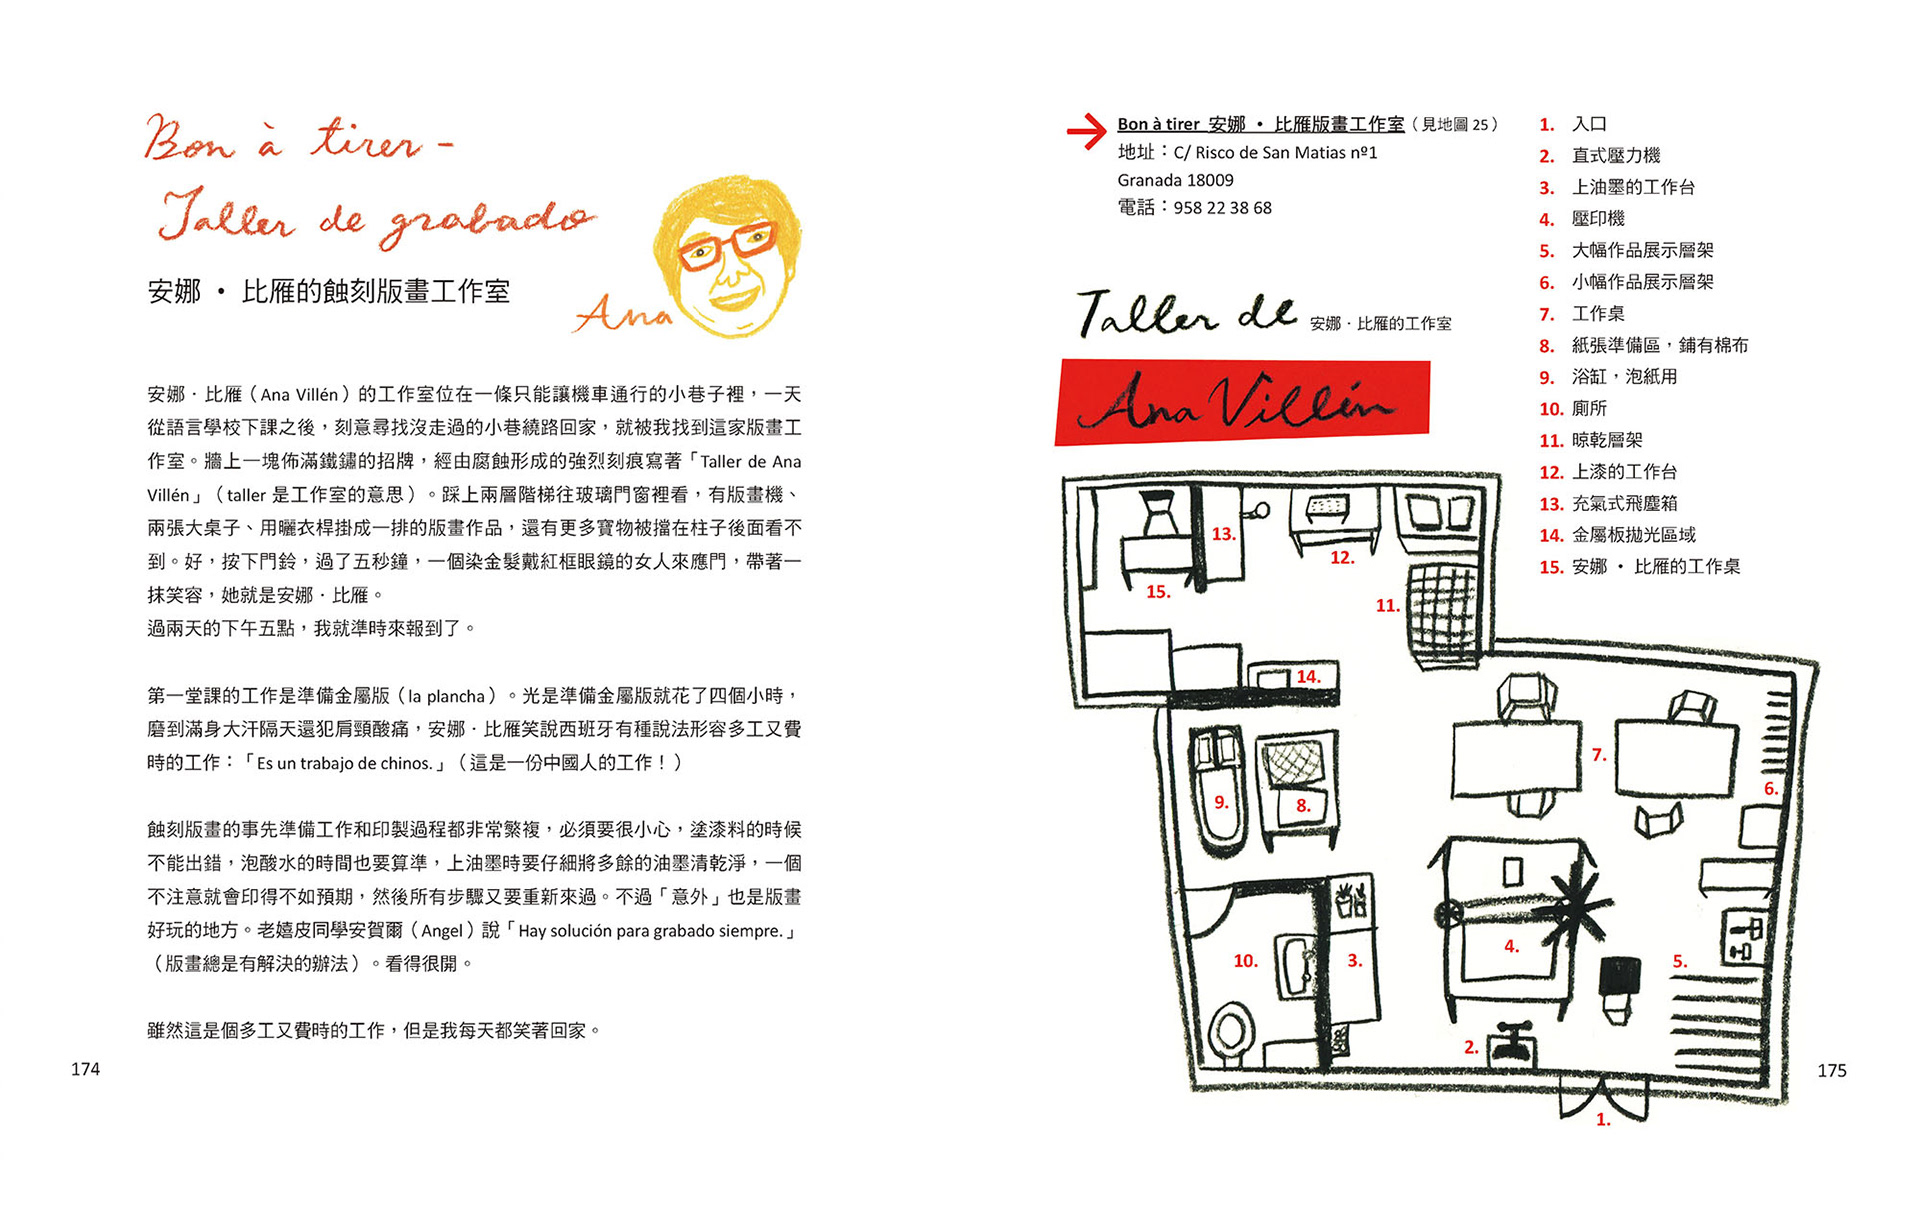 Bon à tirer –
Taller de grabado
安娜 • 比雁的蝕刻版畫工作室
Ana
安娜 · 比雁（Ana Villén）的工作室位在一條只能讓機車通行的小巷子裡，一天
從語言學校下課之後，刻意尋找沒走過的小巷繞路回家，就被我找到這家版畫工
作室。牆上一塊佈滿鐵鏽的招牌，經由腐蝕形成的強烈刻痕寫著「Taller de Ana
Villén」（taller 是工作室的意思）。踩上兩層階梯往玻璃門窗裡看，有版畫機、
兩張大桌子、用曬衣桿掛成一排的版畫作品，還有更多寶物被擋在柱子後面看不
到。好，按下門鈴，過了五秒鐘，一個染金髮戴紅框眼鏡的女人來應門，帶著一
抹笑容，她就是安娜 · 比雁。
過兩天的下午五點，我就準時來報到了。
第一堂課的工作是準備金屬版（la plancha）。光是準備金屬版就花了四個小時，
磨到滿身大汗隔天還犯肩頸酸痛，安娜 · 比雁笑說西班牙有種說法形容多工又費
時的工作：「Es un trabajo de chinos.」（這是一份中國人的工作！）
蝕刻版畫的事先準備工作和印製過程都非常繁複，必須要很小心，塗漆料的時候
不能出錯，泡酸水的時間也要算準，上油墨時要仔細將多餘的油墨清乾淨，一個
不注意就會印得不如預期，然後所有步驟又要重新來過。不過「意外」也是版畫
好玩的地方。老嬉皮同學安賀爾（Angel）說「Hay solución para grabado siempre.」
（版畫總是有解決的辦法）。看得很開。
雖然這是個多工又費時的工作，但是我每天都笑著回家。
174
Bon à tirer 安娜 • 比雁版畫工作室（見地圖 25）
地址：C/ Risco de San Matias nº1
Granada 18009
電話：958 22 38 68
Taller de 安娜 · 比雁的工作室
Ana Villén
1. 入口
2. 直式壓力機
3. 上油墨的工作台
4. 壓印機
5. 大幅作品展示層架
6. 小幅作品展示層架
7. 工作桌
8. 紙張準備區，鋪有棉布
9. 浴缸，泡紙用
10. 廁所
11. 晾乾層架
12. 上漆的工作台
13. 充氣式飛塵箱
14. 金屬板拋光區域
15. 安娜 • 比雁的工作桌
13.
12.
15.
11.
14.
7.
6.
9.
8.
4.
10.
3.
5.
2.
1.
175